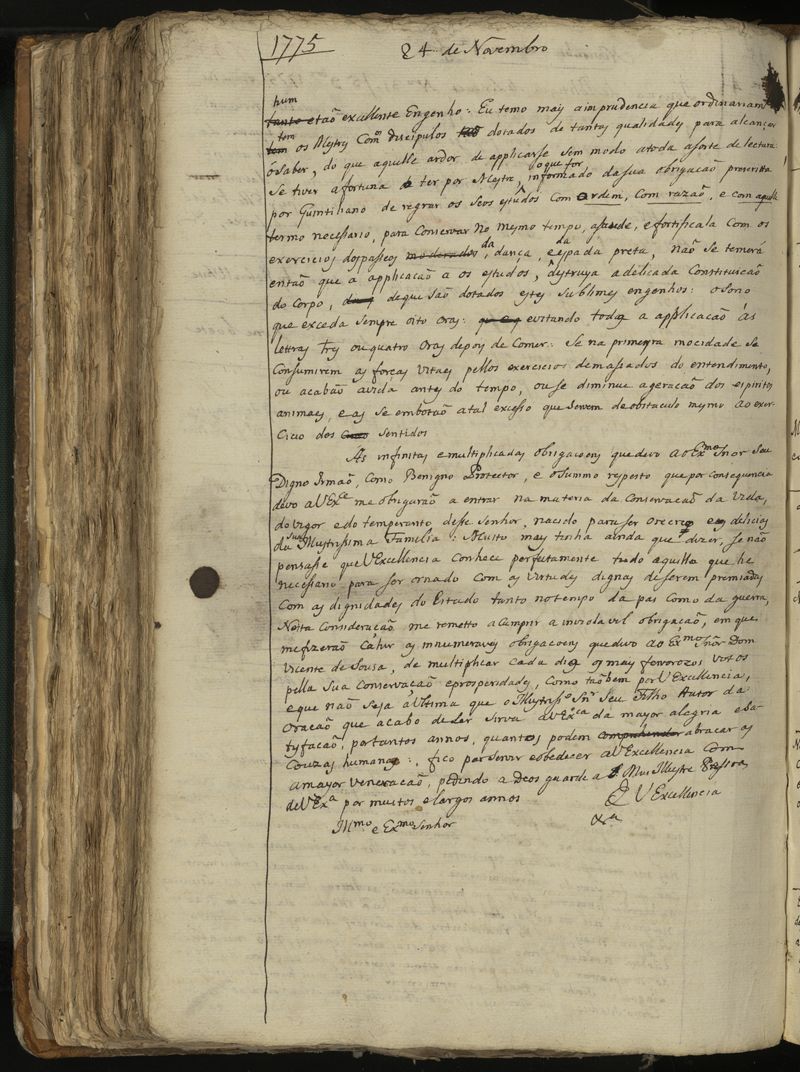 1775
24 de Novembro
hum
tanto etaõ excellente Engenho: Eu temo may aimprudencia que ordinariam
tem
tem os Mestres Com discipulos dotados de tantas qualidades para alcançar
ósaber, do que aquelle ardor de applicarse sem modo atoda asorte delectura:
o que for
Se tiver afortuna ter por Mestre, informado da sua obrigaçaõ prescritta
por Quintiliano de regrar os seos estudos com ordem, com razaõ, e com aquelle
termo necessario, para Conservar no mesmo tempo, asaude, e fortificala com os
da da
exercicios dospasseos moderados, dança, eespada preta, naõ se temerá
entaõ que a applicacaõ a os estudos, destruya adelicada Constituicaõ
do Corpo, deque saõ dotados estes sublimes engenhos: osono
que exceda sempre oito oras: evitando toda a applicacaõ ás
lettras tres ou quatro Oras depois de Comer: Se na primeyra mocidade se
Consumirem as forças Vitaes pellos exercicios demasiados do entendimento,
ou acabaõ avida antes do tempo, ou se diminue ageracaõ dos espiritos
animaes, e as se embotaõ atal excesso que servem deobstaculo mesmo ao exer-
cicio dos Sentidos
As infinitas emultiplicadas obrigacoens quedevo ao Exmo Snor Seu
Digno Irmaõ, Como Benigno Protector, e osummo respeito que por consequencia
devo aVExe meobrigaraõ a entrar na materia da Conservacaõ da Vida,
do vigor edo temperante desse Senhor, nacido para ser orecreo eas delicias
sua
da Illustrissima Familia: Muito mais tinha ainda que dizer, se naõ
pensasse queVExcellencia conhece perfeitamente tudo aquillo que he
necessario para ser ornado Com as Virtudes dignas deserem premiadas
Com as dignidades do Estado tanto notempo da pas como da guerra,
Nesta Consideraçaõ me remetto aCumprir a inviolavel obrigaçaõ, em que
mefizeraõ Cahir as innumeraveis obrigacoens quedevo ao Exmo Sñor Dom
Vicente de Sousa, de multiplicar cada dia os mais fervorozos Votos
pella Sua Conservaçaõ eprosperidade, Como taõbem porVExcellencia,
eque naõ Seja aUltima que o Illustrisso Snr Seu Filho Autor da
oracaõ que acabo deler sirva aVExca da mayor alegria esa-
tisfacaõ, portantos annos, quantos podem comprehender abracar as
Couzas humanas:, fico parservir eobedecer aVExcellencia Com
amayor veneracaõ, pedindo a Deos guarde a Illustre Pessoa
deVExa por muitos elargos annos
D VExcellencia
Illmo e Exmo Senhor
&ra